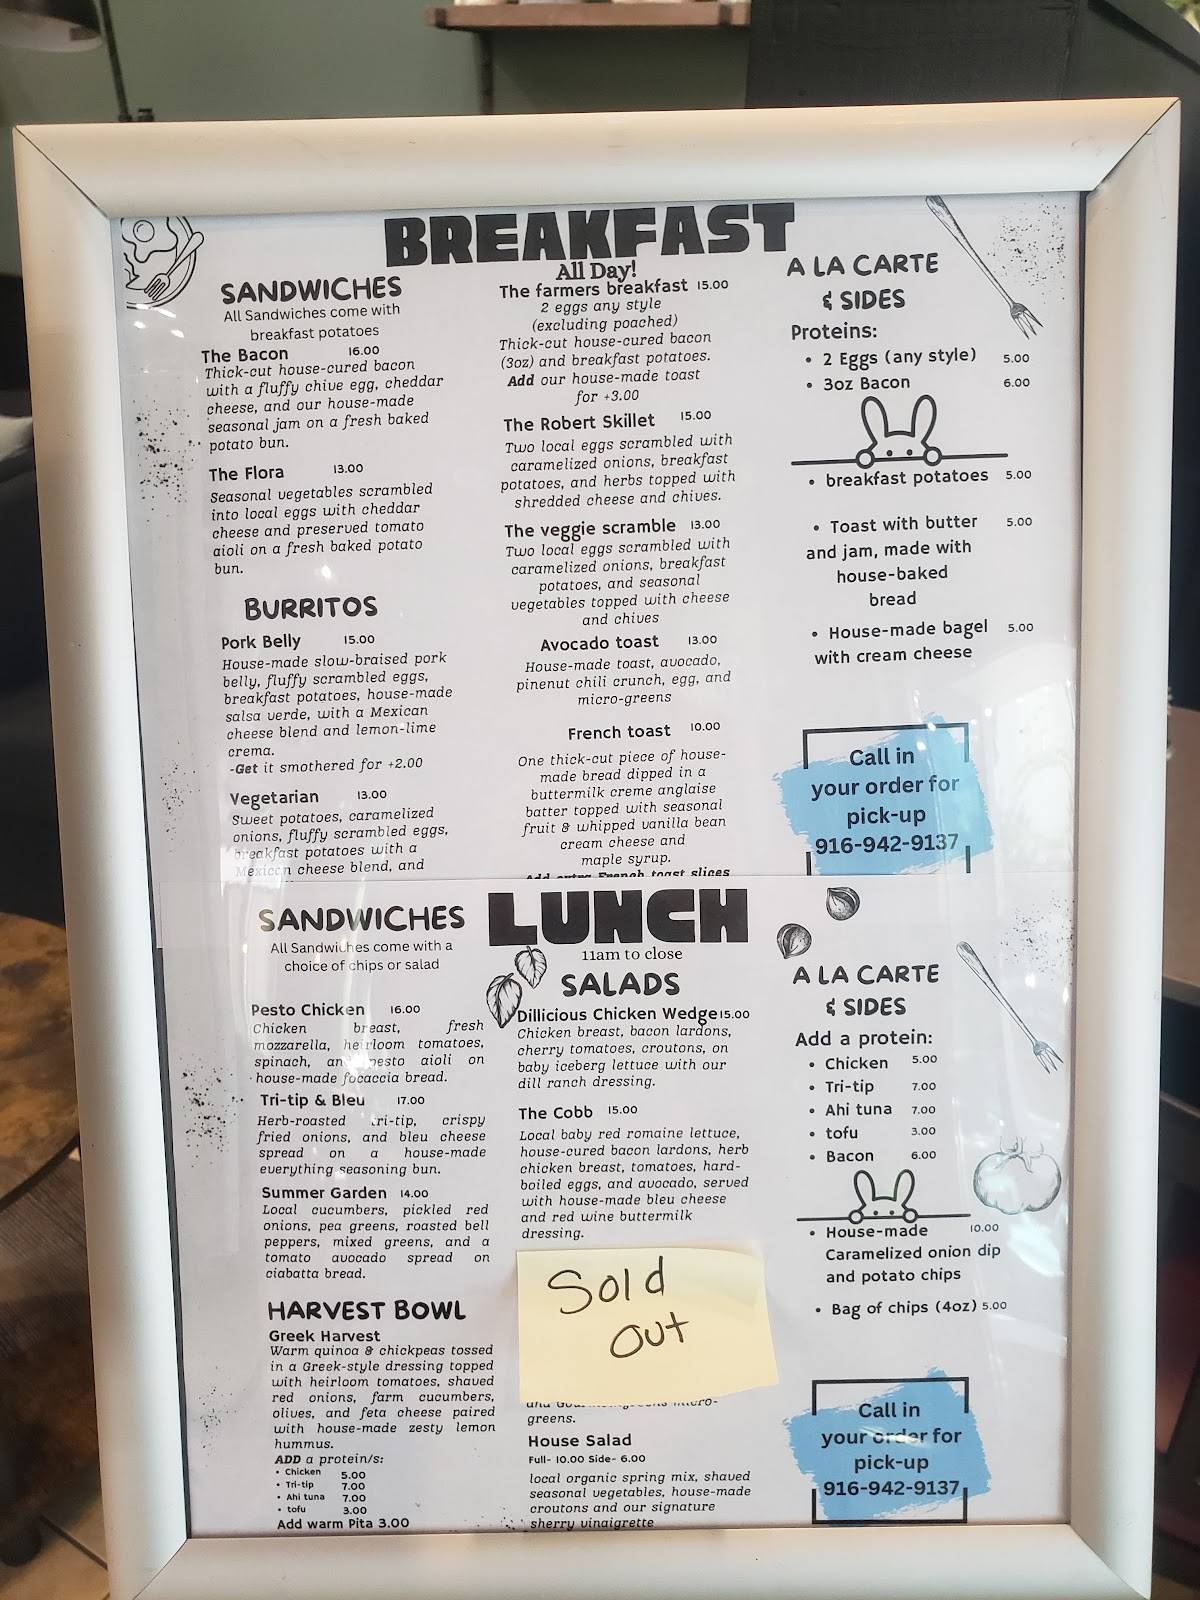 BREAKFAST
All Day!
SANDWICHES
All Sandwiches come with
breakfast potatoes
The Bacon 16.00
Thick-cut house-cured bacon
with a fluffy chive egg, cheddar
cheese, and our house-made
seasonal jam on a fresh baked
potato bun.
The Flora 13.00
Seasonal vegetables scrambled
into local eggs with cheddar
cheese and preserved tomato
aioli on a fresh baked potato
bun.
BURRITOS
Pork Belly 15.00
House-made slow-braised pork
belly, fluffy scrambled eggs,
breakfast potatoes, house-made
salsa verde, with a Mexican
cheese blend and lemon-lime
crema.
-Get it smothered for +2.00
Vegetarian 13.00
Sweet potatoes, caramelized
onions, fluffy scrambled eggs,
breakfast potatoes with a
Mexican cheese blend, and
The farmers breakfast 15.00
2 eggs any style
(excluding poached)
Thick-cut house-cured bacon
(3oz) and breakfast potatoes.
Add our house-made toast
for +3.00
The Robert Skillet 15.00
Two local eggs scrambled with
caramelized onions, breakfast
potatoes, and herbs topped with
shredded cheese and chives.
The veggie scramble 13.00
Two local eggs scrambled with
caramelized onions, breakfast
potatoes, and seasonal
vegetables topped with cheese
and chives
Avocado toast 13.00
House-made toast, avocado,
pinenut chili crunch, egg, and
micro-greens
French toast 10.00
One thick-cut piece of house-
made bread dipped in a
buttermilk creme anglaise
batter topped with seasonal
fruit & whipped vanilla bean
cream cheese and
maple syrup.
Add extra French toast slices
A LA CARTE
& SIDES
Proteins:
• 2 Eggs (any style) 5.00
• 3oz Bacon 6.00
• breakfast potatoes 5.00
• Toast with butter 5.00
and jam, made with
house-baked
bread
• House-made bagel 5.00
with cream cheese
Call in
your order for
pick-up
916-942-9137
LUNCH
11am to close
SANDWICHES
All Sandwiches come with a
choice of chips or salad
Pesto Chicken 16.00
Chicken breast, fresh
mozzarella, heirloom tomatoes,
spinach, and pesto aioli on
house-made focaccia bread.
Tri-tip & Bleu 17.00
Herb-roasted tri-tip, crispy
fried onions, and bleu cheese
spread on a house-made
everything seasoning bun.
Summer Garden 14.00
Local cucumbers, pickled red
onions, pea greens, roasted bell
peppers, mixed greens, and a
tomato avocado spread on
ciabatta bread.
HARVEST BOWL
Greek Harvest
Warm quinoa & chickpeas tossed
in a Greek-style dressing topped
with heirloom tomatoes, shaved
red onions, farm cucumbers,
olives, and feta cheese paired
with house-made zesty lemon
hummus.
ADD a protein/s:
• Chicken 5.00
• Tri-tip 7.00
• Ahi tuna 7.00
• tofu 3.00
Add warm Pita 3.00
SALADS
Dillicious Chicken Wedge 15.00
Chicken breast, bacon lardons,
cherry tomatoes, croutons, on
baby iceberg lettuce with our
dill ranch dressing.
The Cobb 15.00
Local baby red romaine lettuce,
house-cured bacon lardons, herb
chicken breast, tomatoes, hard-
boiled eggs, and avocado, served
with house-made bleu cheese
and red wine buttermilk
dressing.
Sold
out
micro-
greens.
House Salad
Full- 10.00 Side- 6.00
local organic spring mix, shaved
seasonal vegetables, house-made
croutons and our signature
sherry vinaigrette
A LA CARTE
& SIDES
Add a protein:
• Chicken 5.00
• Tri-tip 7.00
• Ahi tuna 7.00
• tofu 3.00
• Bacon 6.00
• House-made 10.00
Caramelized onion dip
and potato chips
• Bag of chips (4oz) 5.00
Call in
your order for
pick-up
916-942-9137